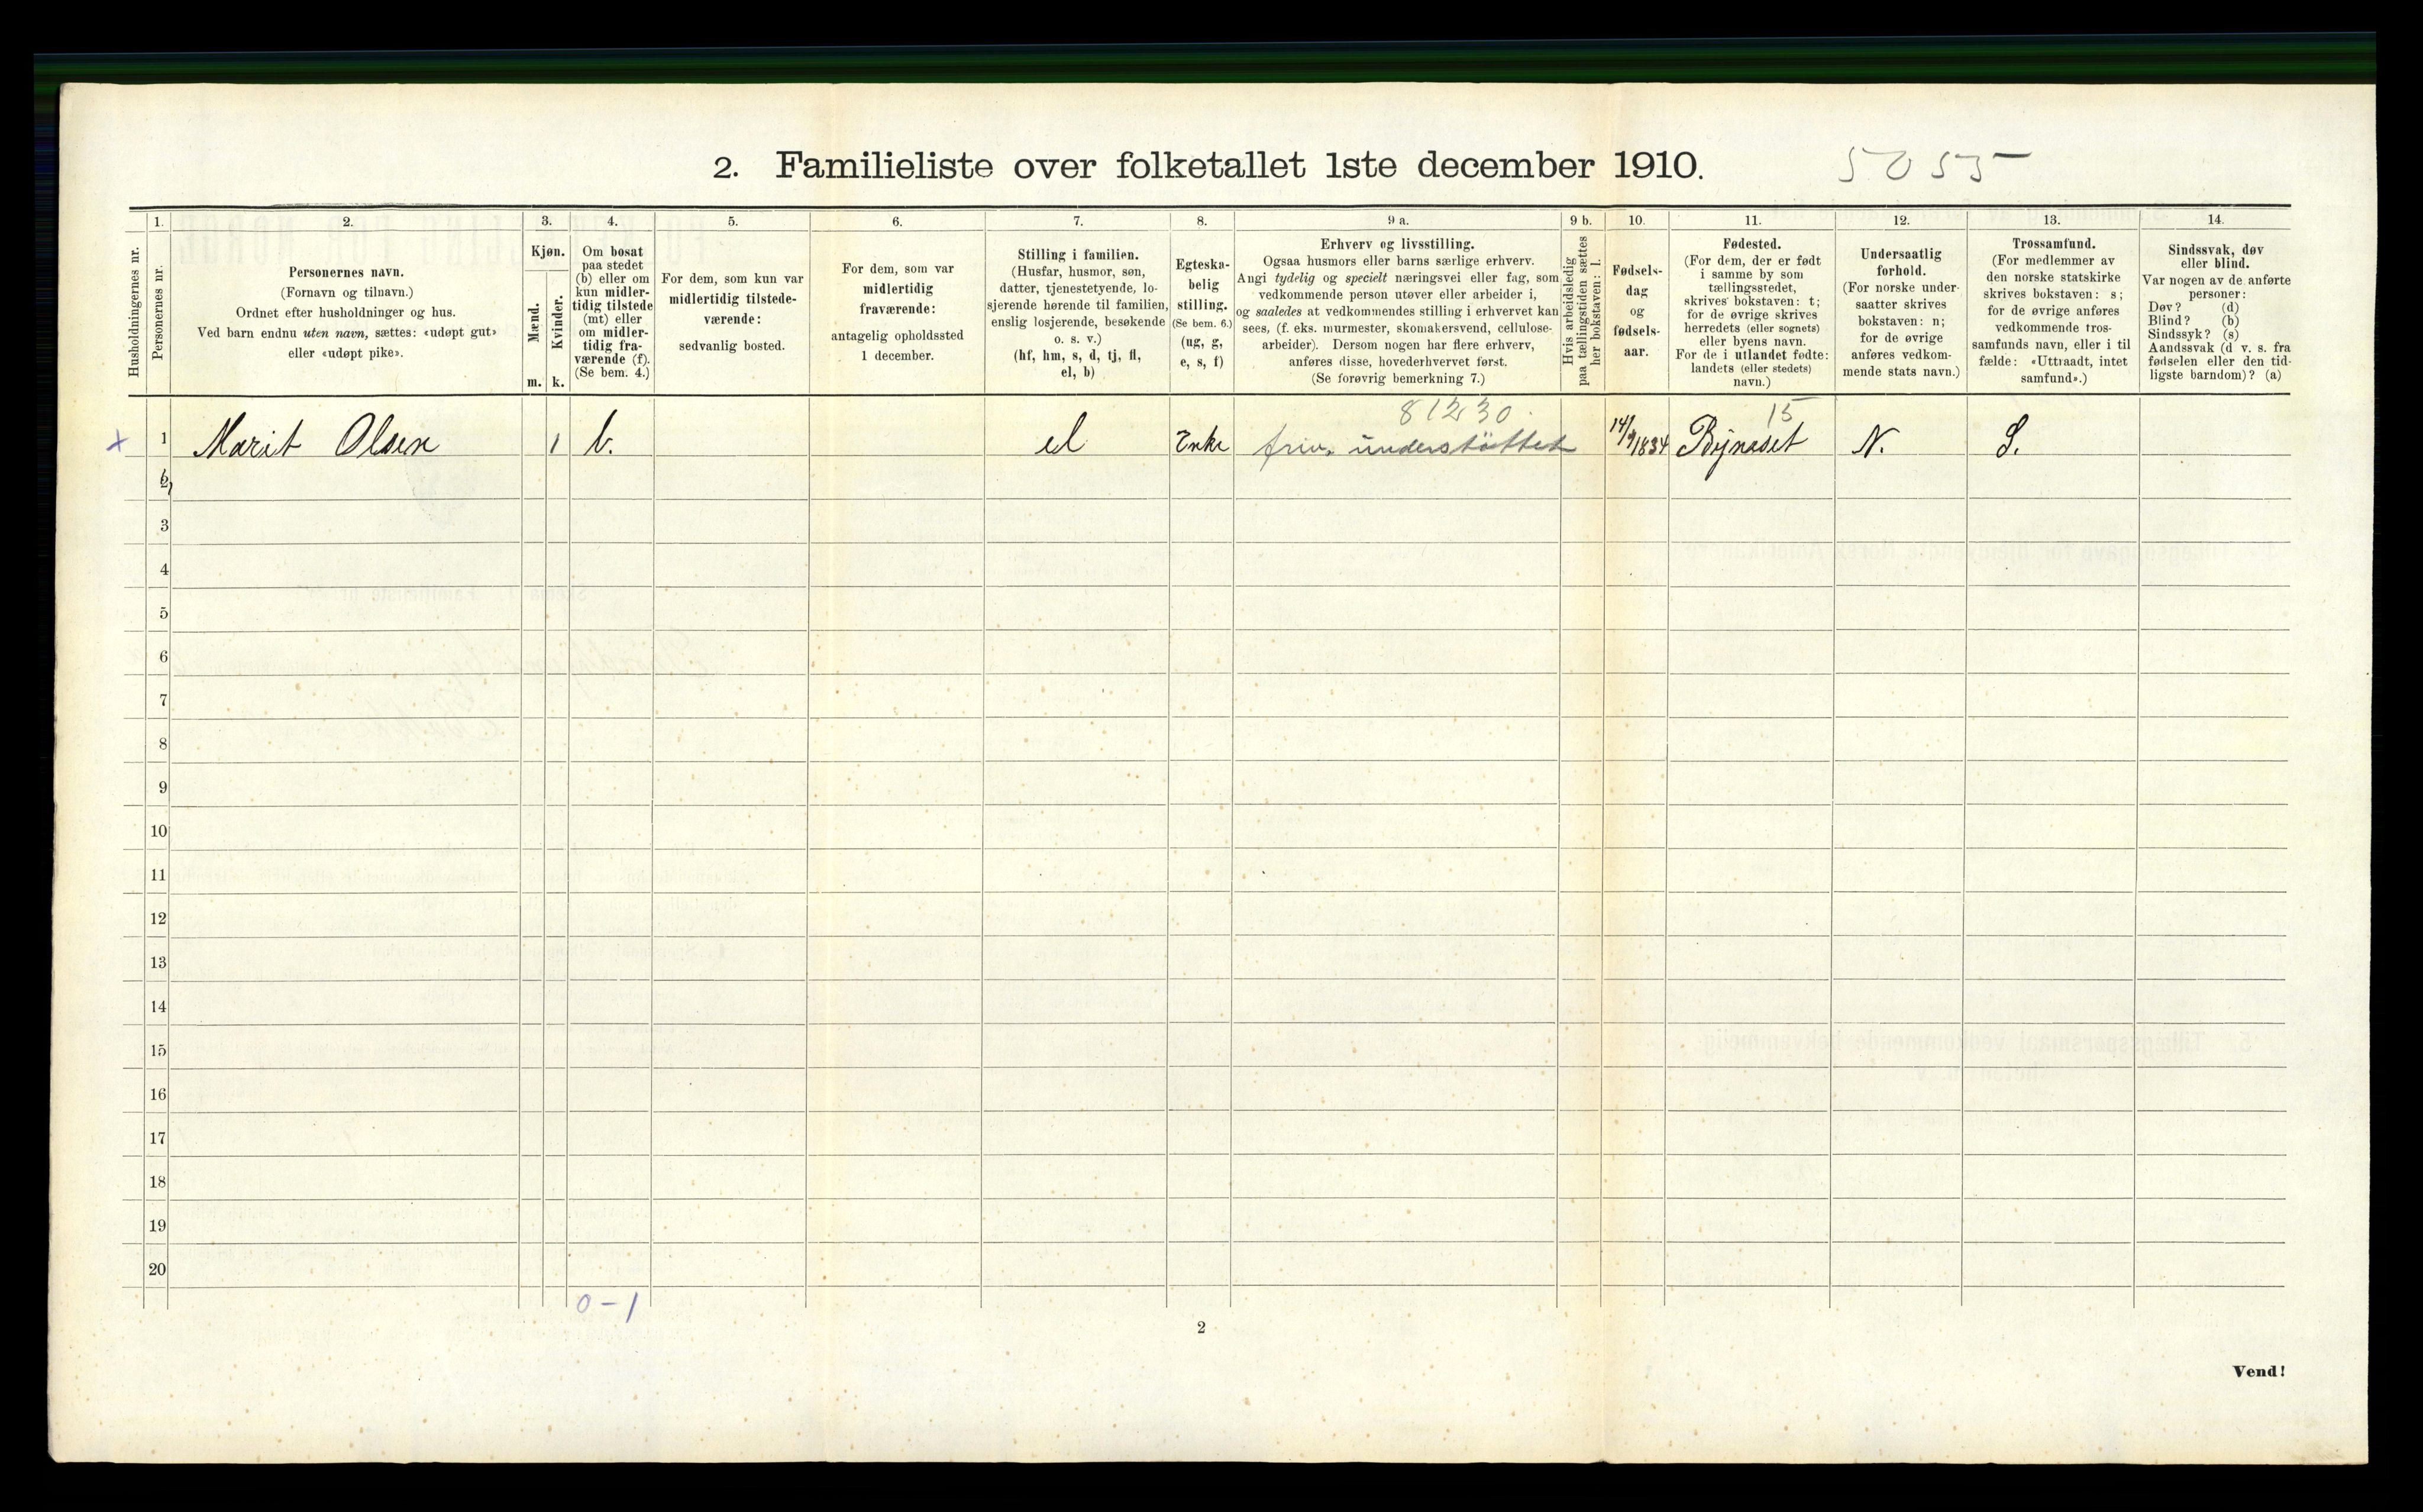 2. Familieliste over folketallet 1ste december 1910.
5055
1. 2. 3. 4. 5. 6. 7. 8. 9 a. 9 b. 10. 11. 12. 13. 14.
Husholdningernes nr.
Personernes nr.
Personernes navn.
(Fornavn og tilnavn.)
Ordnet efter husholdninger og hus.
Ved barn endnu uten navn, sættes: «udøpt gut»
eller «udøpt pike».
Kjøn.
Mænd.
Kvinder.
m. k.
Om bosat
paa stedet
(b) eller om
kun midler-
tidig tilstede
(mt) eller
om midler-
tidig fra-
værende (f).
(Se bem. 4.)
For dem, som kun var
midlertidig tilstede-
værende:
sedvanlig bosted.
For dem, som var
midlertidig
fraværende:
antagelig opholdssted
1 december.
Stilling i familien.
(Husfar, husmor, søn,
datter, tjenestetyende, lo-
sjerende hørende til familien,
enslig losjerende, besøkende
o. s. v.)
(hf, hm, s, d, tj, fl,
el, b)
Egteska-
belig
stilling.
(Se bem. 6.)
(ug, g,
e, s, f)
Erhverv og livsstilling.
Ogsaa husmors eller barns særlige erhverv.
Angi tydelig og specielt næringsvei eller fag, som
vedkommende person utøver eller arbeider i,
og saaledes at vedkommendes stilling i erhvervet kan
sees, (f. eks. murmester, skomakersvend, cellulose-
arbeider). Dersom nogen har flere erhverv,
anføres disse, hovederhvervet først.
(Se forøvrig bemerkning 7.)
Hvis arbeidsledig
paa tællingstiden sættes
her bokstaven: l.
Fødsels-
dag
og
fødsels-
aar.
Fødested.
(For dem, der er født
i samme by som
tællingsstedet,
skrives bokstaven: t;
for de øvrige skrives
herredets (eller sognets)
eller byens navn.
For de i utlandet fødte:
landets (eller stedets)
navn.)
Undersaatlig
forhold.
(For norske under-
saatter skrives
bokstaven: n;
for de øvrige
anføres vedkom-
mende stats navn.)
Trossamfund.
(For medlemmer av
den norske statskirke
skrives bokstaven: s;
for de øvrige anføres
vedkommende tros-
samfunds navn, eller i til
fælde: «Uttraadt, intet
samfund».)
Sindssvak, døv
eller blind.
Var nogen av de anførte
personer:
Døv? (d)
Blind? (b)
Sindssyk? (s)
Aandssvak (d v. s. fra
fødselen eller den tid-
ligste barndom)? (a)
81230 15
x 1 Marit Olsen 1 b. el Enke friv. understöttet 14/9 1834 Bynæset N. S.
2
3
4
5
6
7
8
9
10
11
12
13
14
15
16
17
18
19
20
0-1
2
Vend!